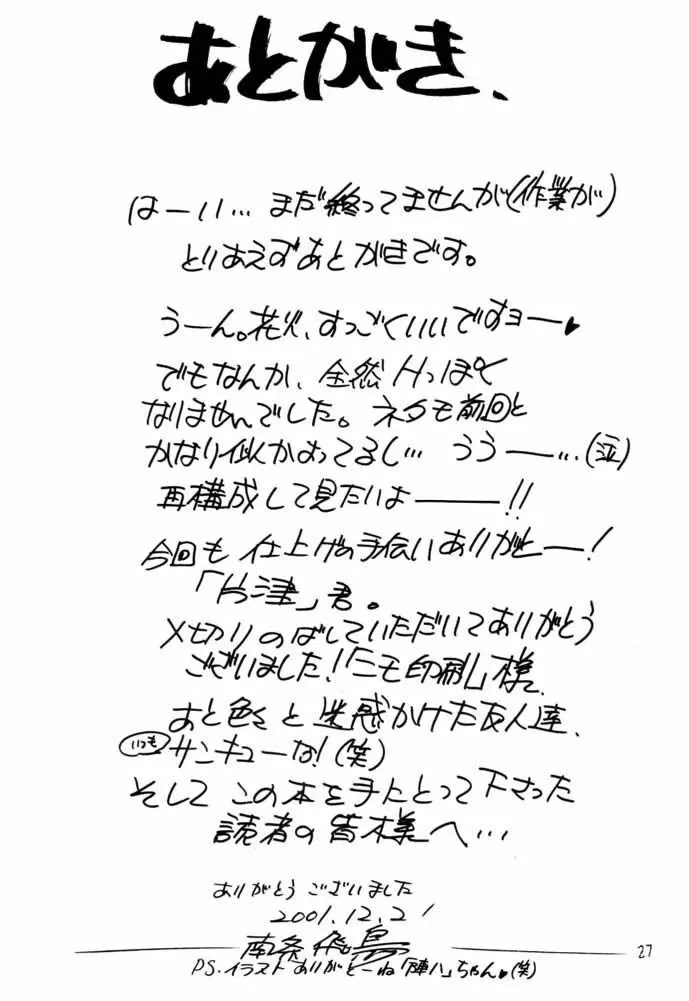 あとがき、
はーい… まだ終ってませんが(作業が)
とりあえずあとがきです。
うーん。花火、すっごくいいですヨー♥
でもなんか、全然Hっぽく
なりませんでした。ネタも前回と
かなり似かよってるし… うう——…(泣)
再構成して見たいよ———!!
今回も仕上げの手伝いありがとー!
「片津」君。
〆切りのばしていただいてありがとう
ございました!「ニモ印刷」様、
あと色々と迷惑かけた友人達、
いつも サンキューな!(笑)
そして この本を手にとって下さった
読者の皆様へ…
ありがとうございました
2001.12.21
南条飛鳥
PS.イラストありがとーね「陣八」ちゃん♥(笑)
27